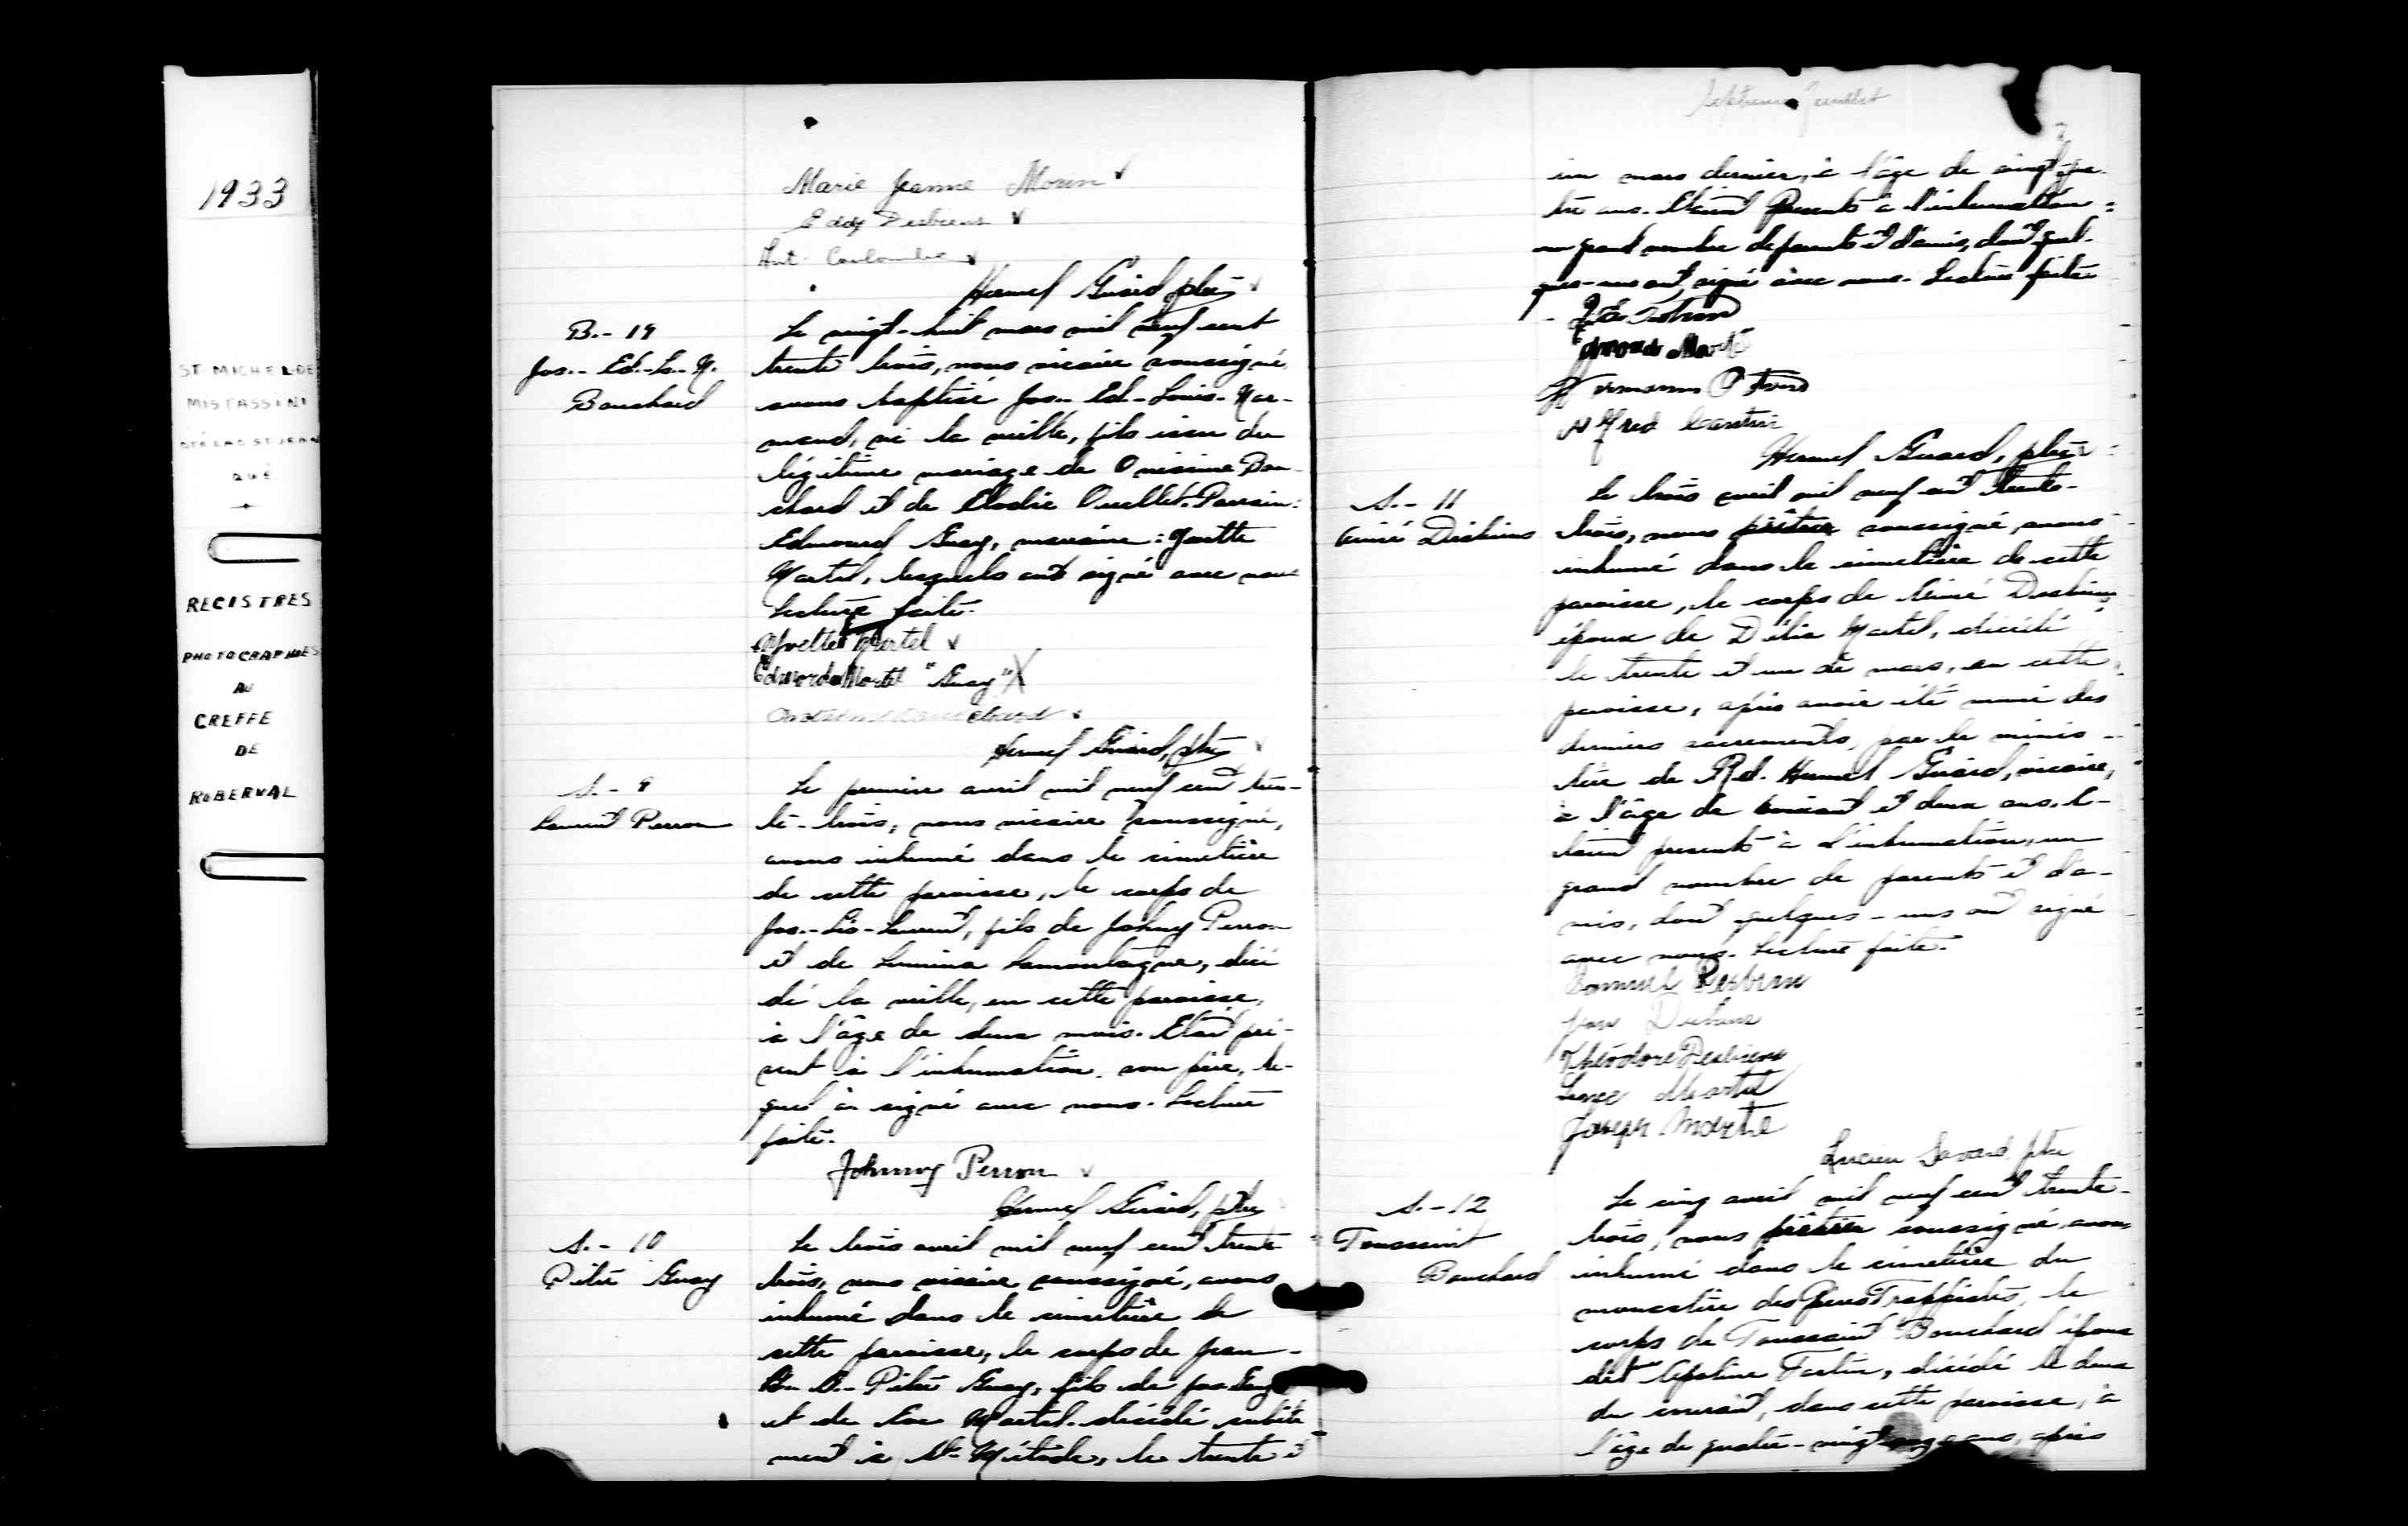 1933
ST-MICHEL-DE
MISTASSINI
CTÉ LAC ST-JEAN
QUÉ
REGISTRES
PHOTOGRAPHIÉS
AU
GREFFE
DE
ROBERVAL
Marie Jeanne Morin
Eddy Desbiens
Ant. Coulombe
Hermel Girard ptre
B.- 19
Jos.- Ed.-L.- N.
Bouchard
Le vingt-huit mars mil neuf cent
trente trois, nous vicaire soussigné,
avons baptisé Jos.- Ed.- Louis- Nor-
mand, né la veille, fils issu du
légitime mariage de Onésime Bou-
chard et de Elodie Ouellet. Parrain:
Edmond Guay, marraine: Yvette
Martel, lesquels ont signé avec nous
Lecture faite.
Yvette Martel
Edword Martel "Guay"
Bouchard
Hermel Girard, ptre
S.- 9
Laurent Perron
Le premier avril mil neuf cent tren-
te-trois, nous vicaire soussigné,
avons inhumé dans le cimetière
de cette paroisse, le corps de
Jos.-Léo-Laurent, fils de Johny Perron
et de Lumina Lamontagne, décé
dé la veille, en cette paroisse,
à l'âge de deux mois. Etait pré-
sent à l'inhumation, son père, le-
quel a signé avec nous. Lecture
faite.
Johnny Perron
Hermel Girard, ptre
S.- 10
Pitre Guay
Le trois avril mil neuf cent trente
trois, nous vicaire soussigné, avons
inhumé dans le cimetière de
cette paroisse, le corps de Jean-
Bte- Pitre Guay, fils de Jos Guay
et de Martel. décédé subite
ment à St- Méthode, le trente et
un mars dernier, à l'âge de vingt-qua-
tre ans. Etaient présents à l'inhumation:
un grand nombre de parents et d'amis, dont quel-
ques-uns ont signé avec nous. Lecture faite
Martel
Alfred Cantin
Hermel Girard, ptre
S.- 11
Aimé Desbiens
Le trois avril mil neuf cent trente-
trois, nous prêtre soussigné, avons
inhumé dans le cimetière de cette
paroisse, le corps de Aimé Desbiens,
époux de Délia Martel, décédé
le trente et un de mars, en cette
paroisse, après avoir été muni des
derniers sacrements, par le minis-
tère de Rd. Hermel Girard, vicaire,
à l'âge de soixante et deux ans. E-
taient présents à l'inhumation, un
grand nombre de parents et d'a-
mis, dont quelques-uns ont signé
avec nous. Lecture faite.
Samuel Desbiens
Desbiens
Théodore Desbiens
Martel
Joseph Martel
Lucien Savard ptre
S.- 12
Toussaint
Bouchard
Le cinq avril mil neuf cent trente-
trois, nous prêtre soussigné, avons
inhumé dans le cimetière du
monastère des Pères Trappistes, le
corps de Toussaint Bouchard époux
de Apoline Fortin, décédé le deux
du courant, dans cette paroisse, à
l'âge de quatre-vingt-onze ans, après